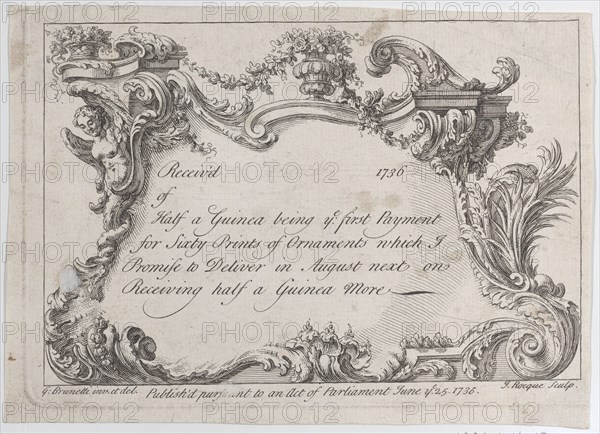 Receiv'd 1736
of
Half a Guinea being ye. first Payment
for Sixty Prints of Ornaments which I
Promise to Deliver in August next on
Receiving half a Guinea More
G. Brunetti inv. et del. Publish'd pursuant to an Act of Parliament June ye. 25. 1736. J. Rocque Sculp.
PHOTO12